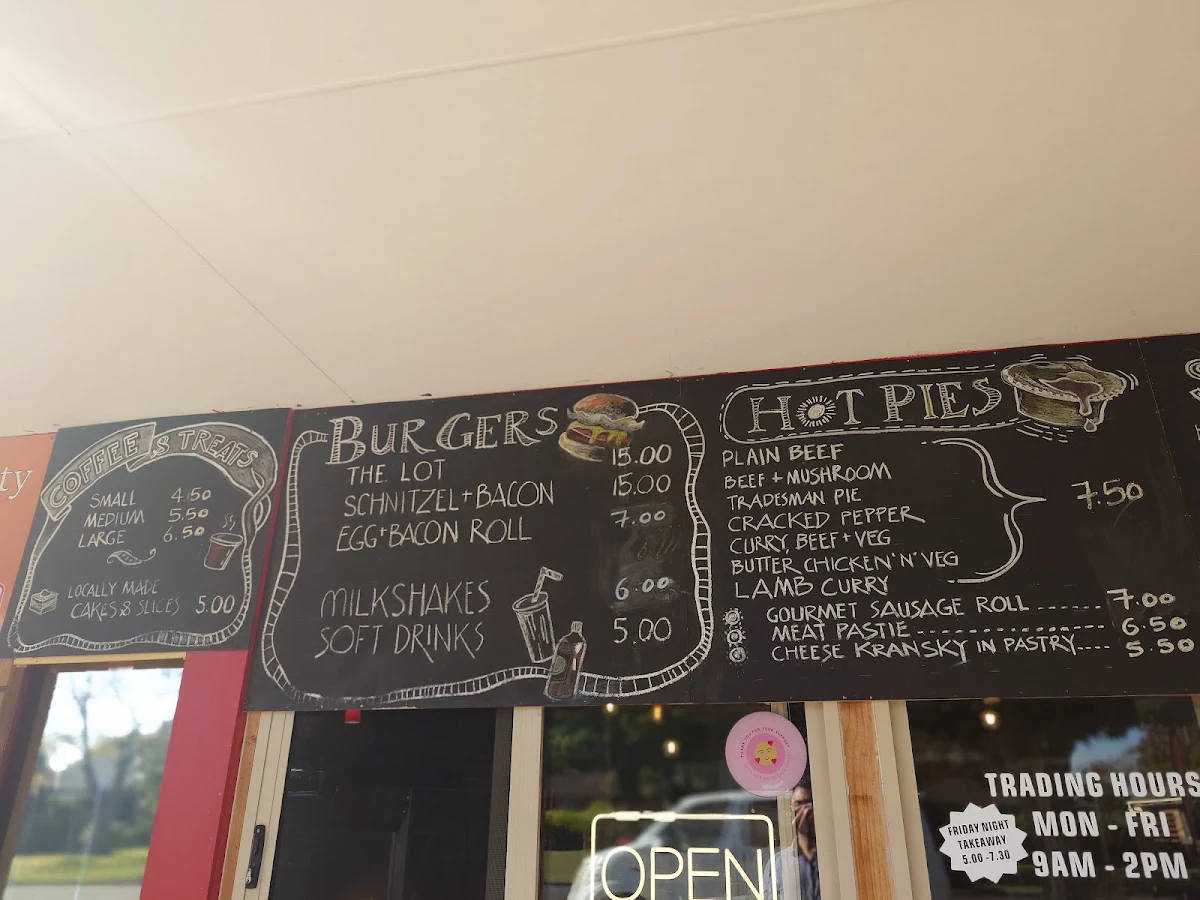 ty
COFFEE & TREATS
SMALL 4.50
MEDIUM 5.50
LARGE 6.50
LOCALLY MADE
CAKES & SLICES 5.00
BURGERS
THE LOT 15.00
SCHNITZEL + BACON 15.00
EGG + BACON ROLL 7.00
MILKSHAKES 6.00
SOFT DRINKS 5.00
HOT PIES
PLAIN BEEF
BEEF + MUSHROOM
TRADESMAN PIE
CRACKED PEPPER
CURRY, BEEF + VEG
BUTTER CHICKEN 'N' VEG
LAMB CURRY
7.50
GOURMET SAUSAGE ROLL ------ 7.00
MEAT PASTIE ---------------- 6.50
CHEESE KRANSKY IN PASTRY---- 5.50
THANK YOU FOR YOUR SUPPORT
OPEN
TRADING HOURS
MON - FRI
9AM - 2PM
FRIDAY NIGHT
TAKEAWAY
5.00 -7.30